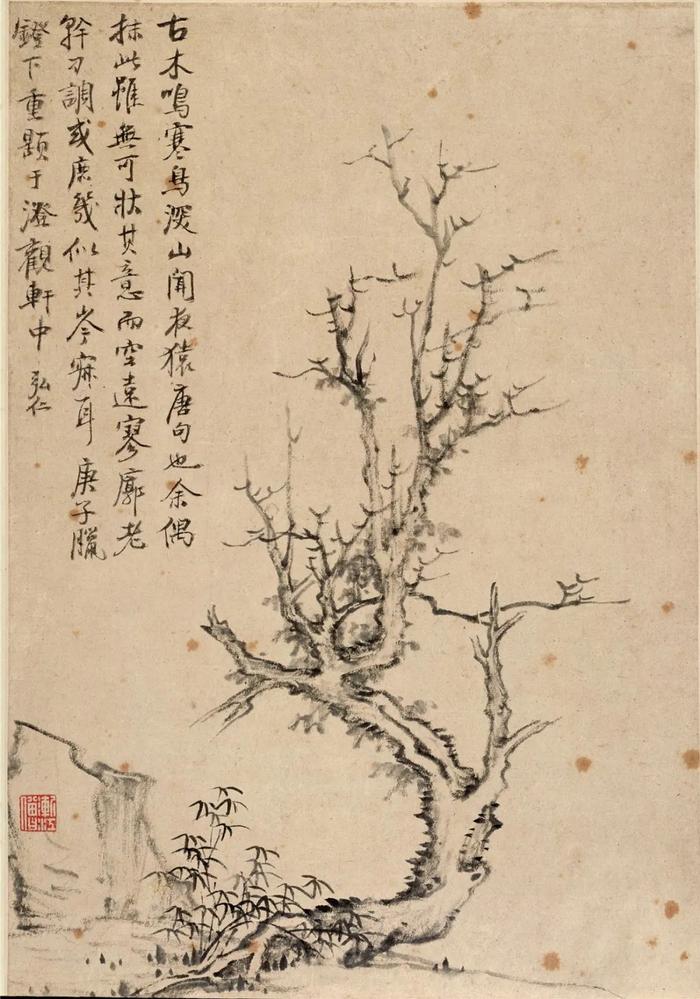 古木鳴寒鳥深山聞夜猿唐句也余偶
抹此雖無可狀其意而空遠寥廓老
幹刁調或庶幾似其岑寂耳庚子臘
鐙下重題于澄觀軒中 弘仁
漸江僧